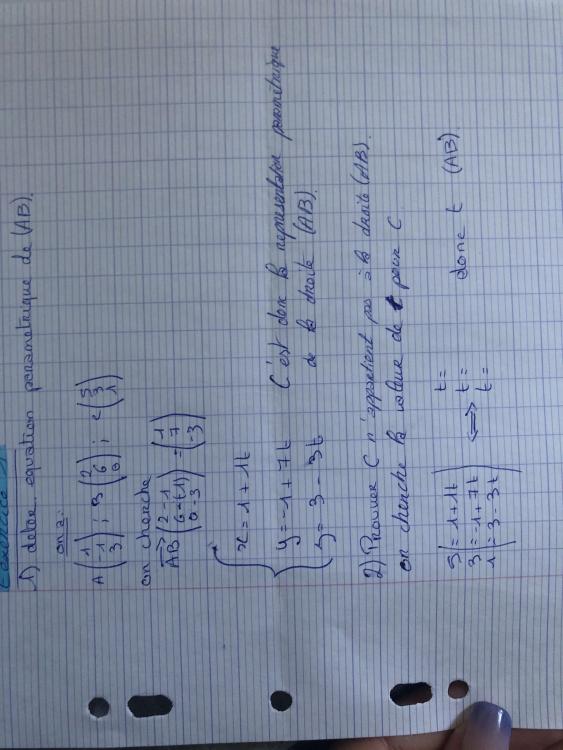 Exercice
1) déter. equation parametrique de (AB).
on a:
A (1 -1 3) ; B (2 6 0) ; C (5 3 1)
on cherche
AB (2-1 6-(-1) 0-3) = (1 7 -3)
x = 1 + 1t
y = -1 + 7t C'est donc la représentation paramétrique
z = 3 - 3t de la droite (AB).
2) Prouver C n'appartient pas à la droite (AB).
on cherche la valeur de t pour C
5 = 1 + 1t t =
3 = -1 + 7t ⟺ t = donc t (AB)
1 = 3 - 3t t =